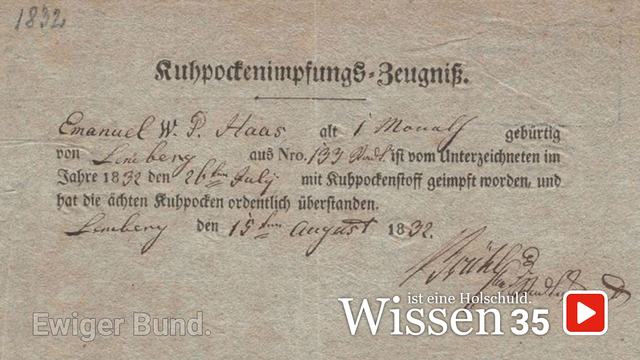 1832
Kuhpockenimpfungs-Zeugniß.
Emanuel W. P. Haas alt 1 Monath gebürtig
von Lemberg aus Nro. 133 Stadt ist vom Unterzeichneten im
Jahre 1832 den 26ten July mit Kuhpockenstoff geimpft worden, und
hat die ächten Kuhpocken ordentlich überstanden.
Lemberg den 15ten August 1832.
Ewiger Bund.
ist eine Holschuld.
Wissen 35